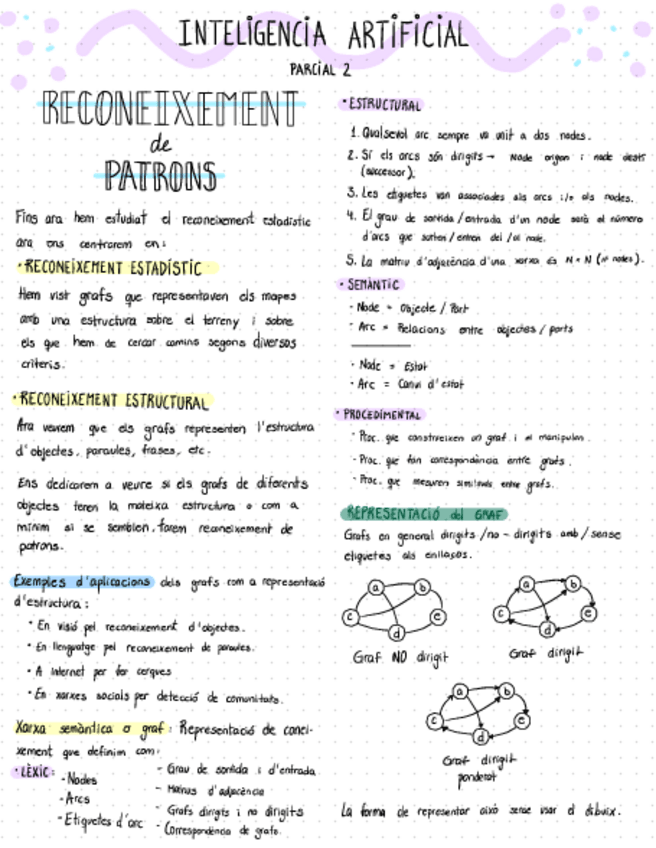 INTELIGENCIA ARTIFICIAL
PARCIAL 2
RECONEIXEMENT
de
PATRONS
Fins ara hem estudiat el reconeixement estadístic
ara ens centrarem en:
· RECONEIXEMENT ESTADÍSTIC
Hem vist grafs que representaven els mapes
amb una estructura sobre el terreny i sobre
els que hem de cercar camins segons diversos
criteris.
· RECONEIXEMENT ESTRUCTURAL
Ara veurem que els grafs representen l'estructura
d'objectes, paraules, frases, etc.
Ens dedicarem a veure si els grafs de diferents
objectes tenen la mateixa estructura o com a
mínim si se semblen, farem reconeixement de
patrons.
Exemples d'aplicacions dels grafs com a representació
d'estructura:
· En visió pel reconeixement d'objectes.
· En llenguatge pel reconeixement de paraules.
· A internet per fer cerques
· En xarxes socials per detecció de comunitats.
Xarxa semàntica o graf: Representació de conei-
xement que definim com:
· LÈXIC:
- Nodes
- Arcs
- Etiquetes d'arc
- Grau de sortida i d'entrada
- Matrius d'adjacència
- Grafs dirigits i no dirigits
- Correspondència de grafs.
· ESTRUCTURAL
1. Qualsevol arc sempre va unit a dos nodes.
2. Si els arcs són dirigits → Node origen i node destí
(successor).
3. Les etiquetes van associades als arcs i/o als nodes.
4. El grau de sortida/entrada d'un node serà el número
d'arcs que surten/entren del/al node.
5. La matriu d'adjacència d'una xarxa és N × N (nº nodes).
· SEMÀNTIC
· Node = Objecte / Part
· Arc = Relacions entre objectes / parts
· Node = Estat
· Arc = Canvi d'estat
· PROCEDIMENTAL
· Proc. que construeixen un graf i el manipulen.
· Proc. que fan correspondència entre grafs.
· Proc. que mesuren similituds entre grafs.
REPRESENTACIÓ del GRAF
Grafs en general dirigits/no-dirigits amb/sense
etiquetes als enllaços.
a b c d e
Graf NO dirigit
a b c d e
Graf dirigit
a b c d e
Graf dirigit
ponderat
La forma de representar això sense usar el dibuix.